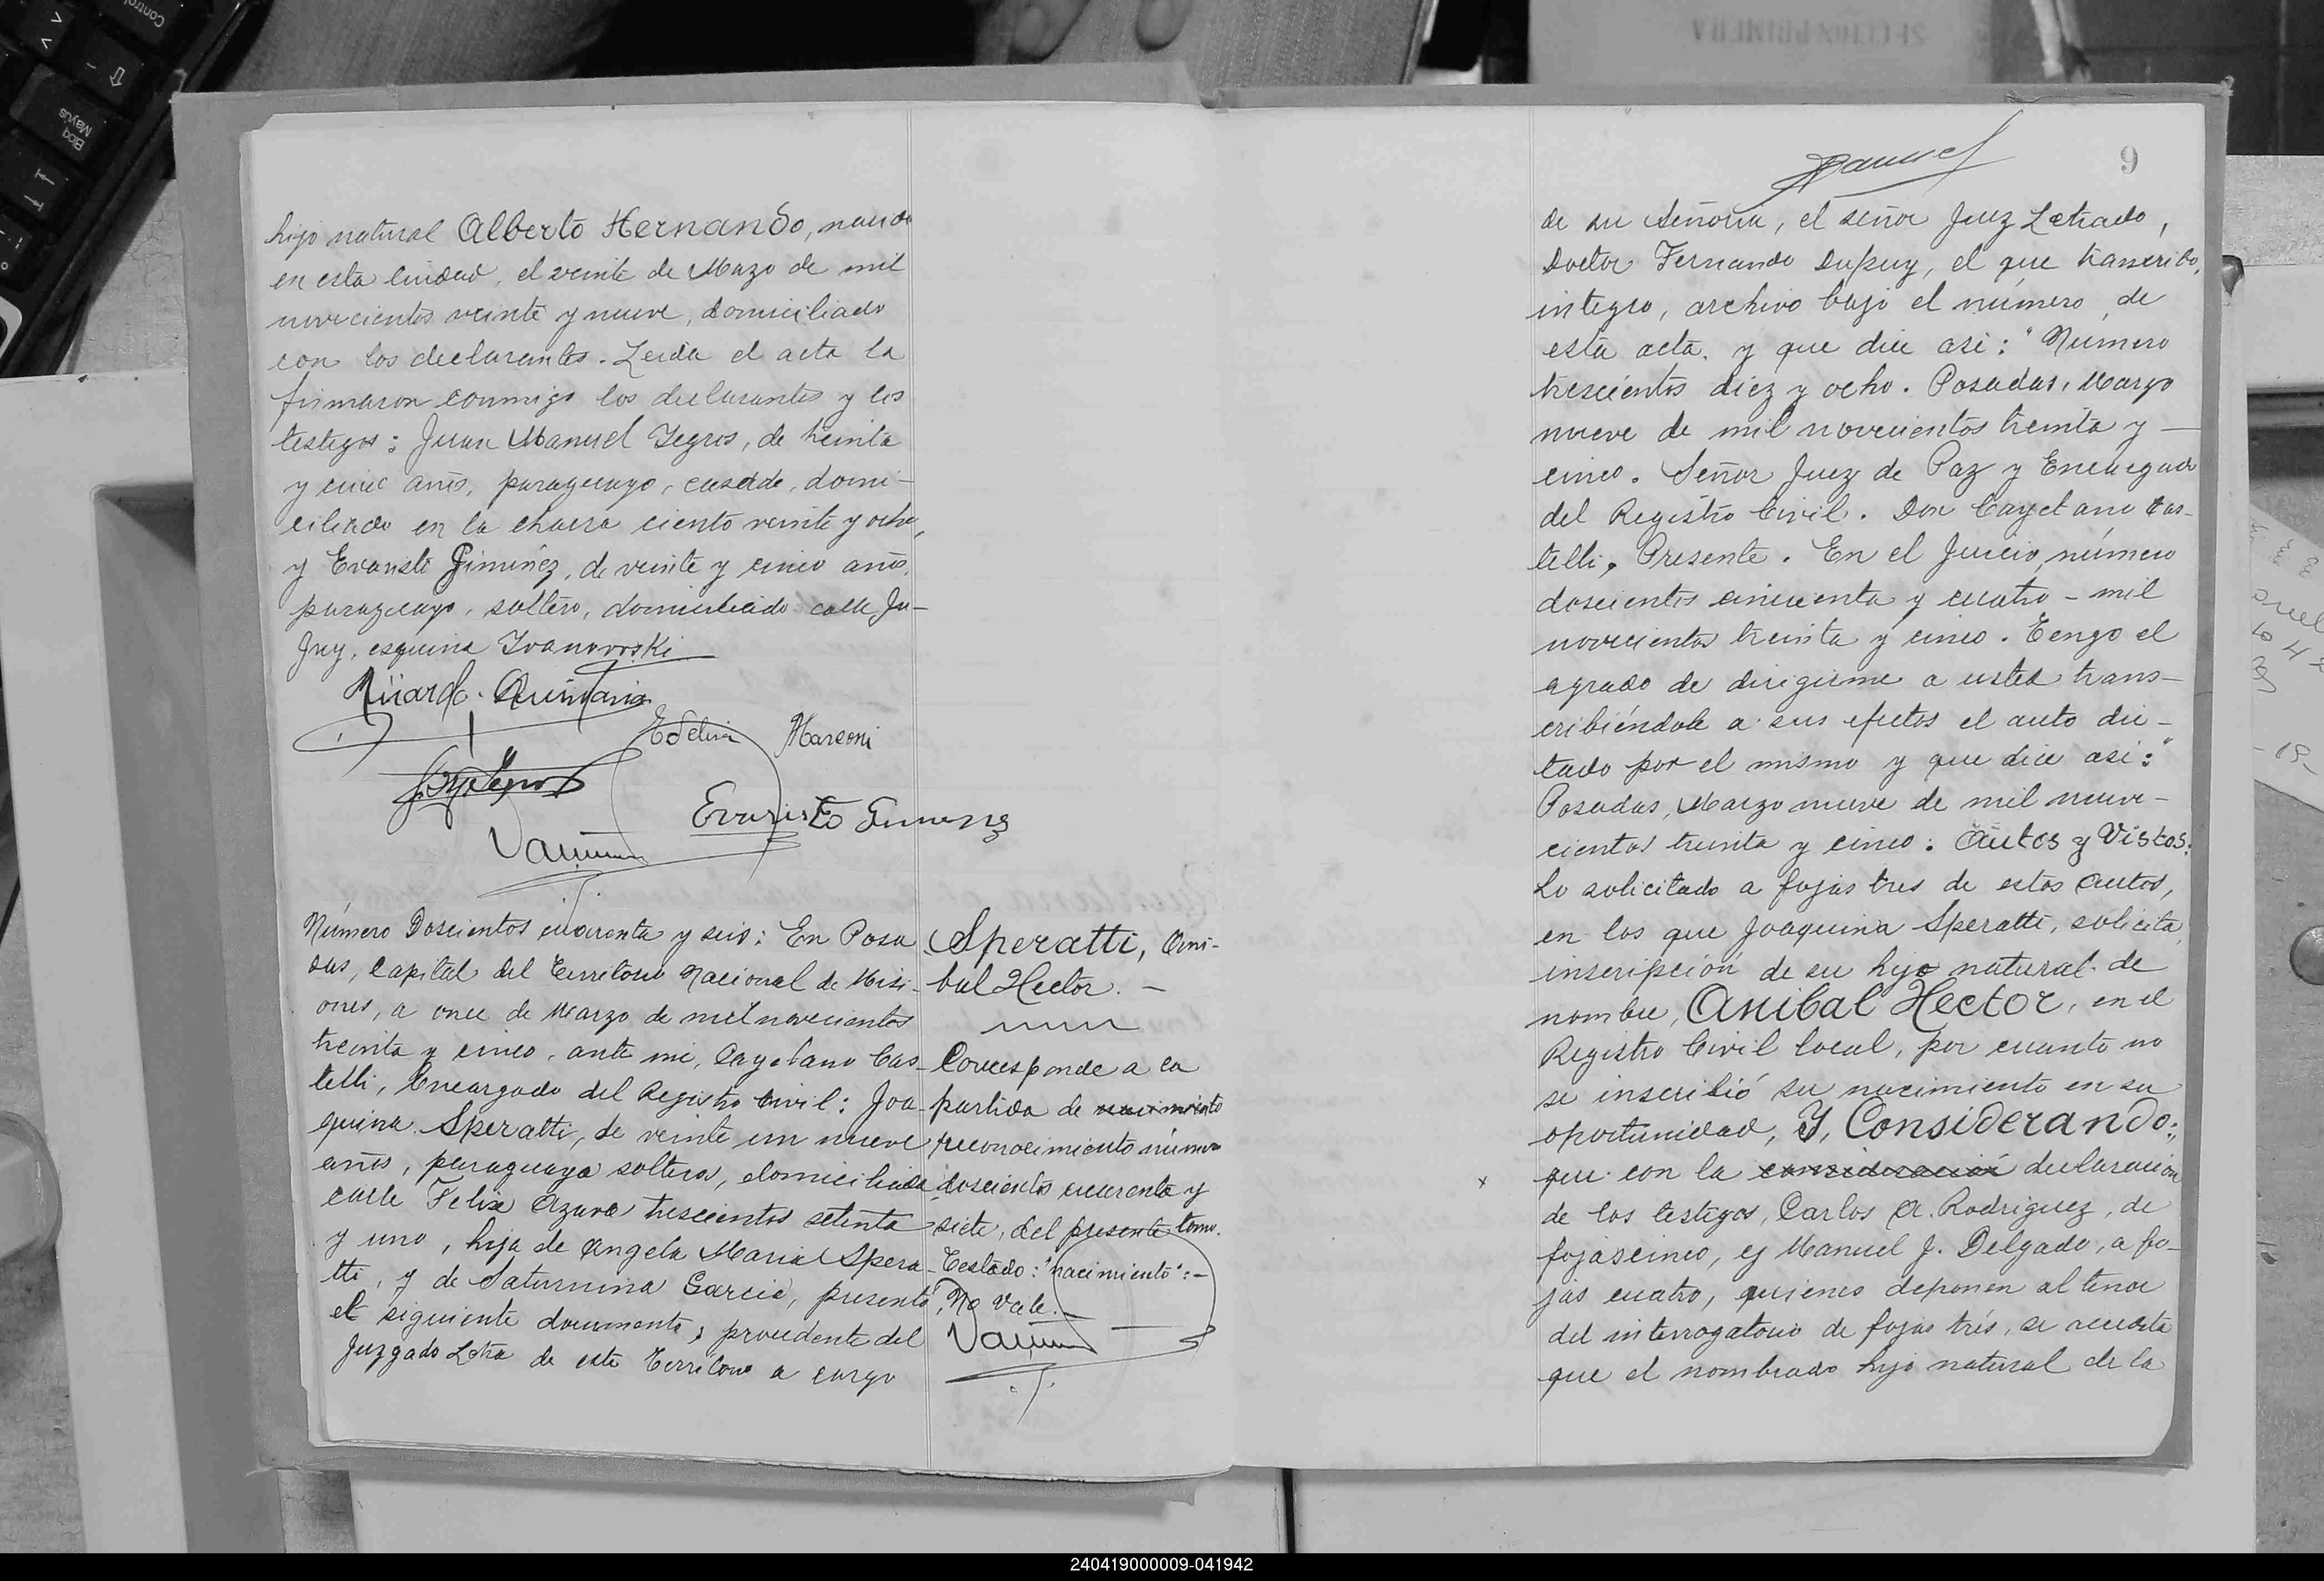 hijo natural Alberto Hernando, nacido
en esta ciudad, el veinte de Marzo de mil
novecientos veinte y nueve, domiciliado
con los declarantes. Leida el acta la
firmaron conmigo los declarantes y los
testigos: Juan Manuel Yegros, de treinta
y cinco años, paraguayo, casado, domi-
ciliado en la chacra ciento veinte y ocho,
y Evaristo Giminéz, de veinte y cinco años,
paraguayo, soltero, domiciliado calle Ju-
juy, esquina Ivanovoski
Edelira Marconi
Evaristo Gimenez
Número Doscientos cuarenta y seis: En Posa
das, Capital del Territorio Nacional de Misi-
ones, a once de Marzo de mil novecientos
treinta y cinco, ante mi, Cayetano Cas-
telli, Encargado del Registro Civil: Joa-
quina Speratti, de veinte un nueve
años, paraguaya soltera, domiciliada
calle Felix Azara trescientos setenta
y uno, hija de Angela Maria Spera-
tti, y de Saturnina Garcia, presentó
el siguiente documento, procedente del
Juzgado Letra de este Territorio a cargo
Speratti, Ani-
bal Hector. -
Corresponde a la
partida de nacimiento
reconocimiento número
doscientos cuarenta y
siete, del presente tomo.
Testado: "nacimiento": -
No Vale. -
9
de su Señoria, el señor Juez Letrado,
Doctor Fernando Dupuy, el que transcribo,
integro, archivo bajo el número de
esta acta, y que dice asi: "Número
trescientos diez y ocho. Posadas, Marzo
nueve de mil novecientos treinta y —
cinco. Señor Juez de Paz y Encargado
del Registro Civil. Don Cayetano Cas-
telli, Presente. En el Juicio, número
doscientos cincuenta y cuatro - mil
novecientos treinta y cinco. Tengo el
agrado de dirigirme a usted trans-
cribiéndole a sus efectos el auto dic-
tado por el mismo y que dice asi: "
Posadas, Marzo nueve de mil nueve-
cientos treinta y cinco: Autos y Vistos:
Lo solicitado a fojas tres de estos autos,
en los que Joaquina Speratti, solicita
inscripción de su hijo natural de
nombre, Anibal Hector, en el
Registro Civil local, por cuanto no
se inscribió su nacimiento en su
oportunidad, Y, Considerando:,
x que con la consideración declaracion
de los testigos, Carlos A. Rodriguez, de
fojas cinco, y Manuel J. Delgado, a fo-
jas cuatro, quienes deponen al tenor
del interrogatorio de fojas trés, se acredita
que el nombrado hijo natural de la
240419000009-041942